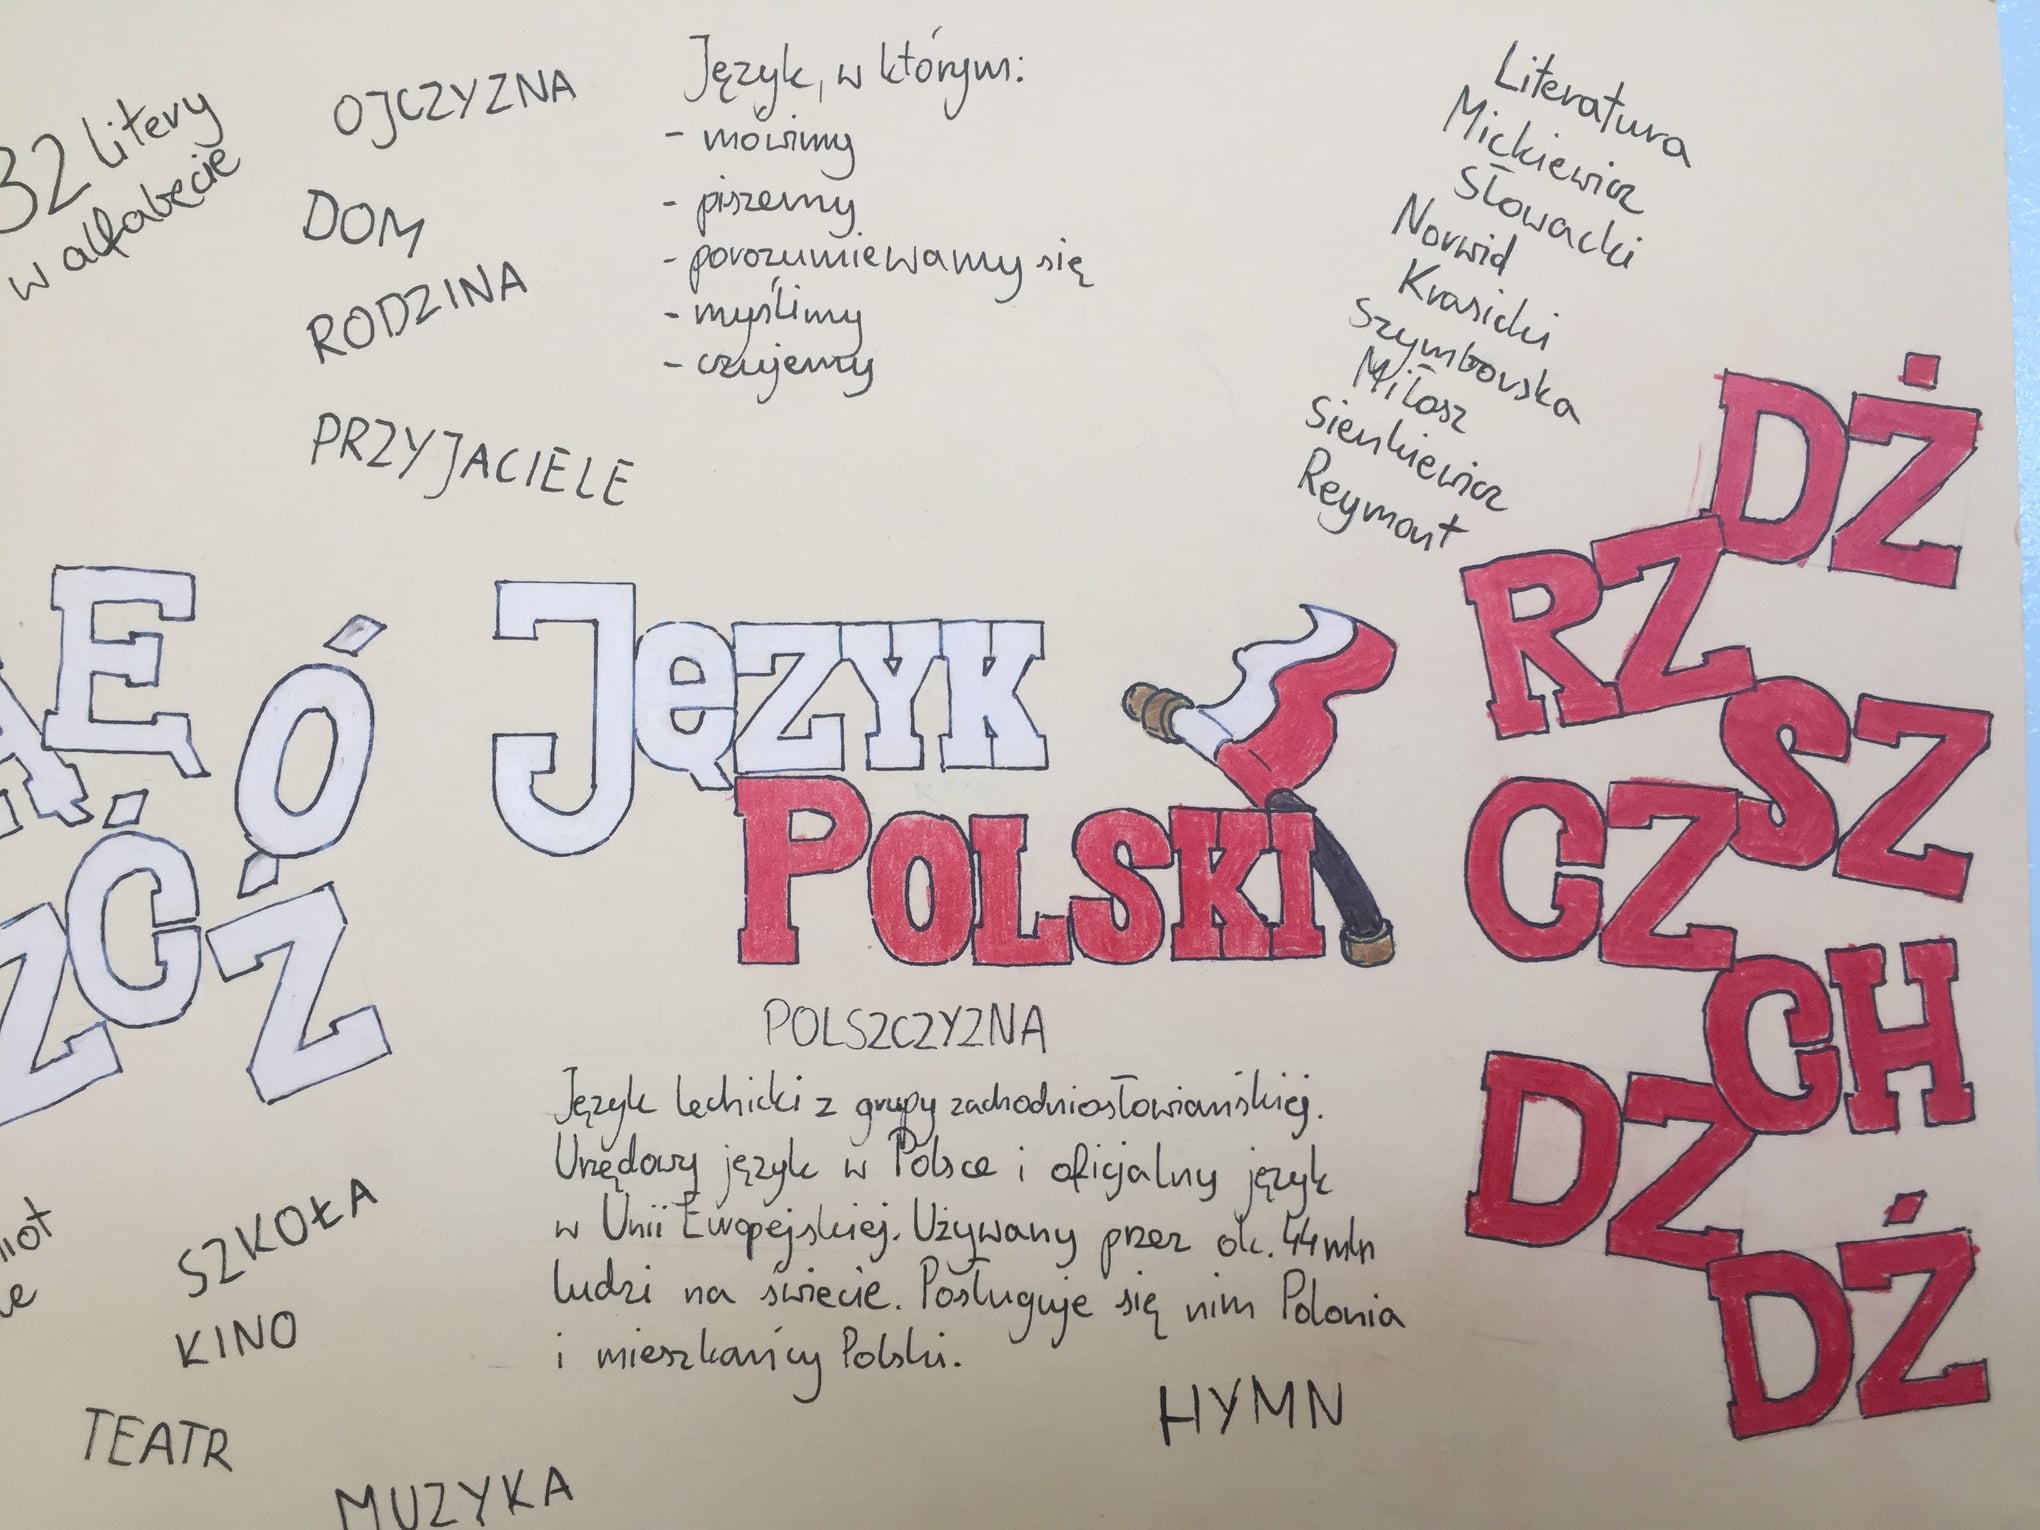 32 litery
w alfabecie
OJCZYZNA
DOM
RODZINA
PRZYJACIELE
Język, w którym:
- mówimy
- piszemy
- porozumiewamy się
- myślimy
- czujemy
Literatura
Mickiewicz
Słowacki
Norwid
Krasicki
Szymborska
Miłosz
Sienkiewicz
Reymont
Ą Ę
Ó
Ć
Z Ź
JĘZYK
POLSKI
DŻ
RZ
SZ
CZ
CH
DZ
DŹ
POLSZCZYZNA
Język lechicki z grupy zachodniosłowiańskiej.
Urzędowy język w Polsce i oficjalny język
w Unii Europejskiej. Używany przez ok. 44 mln
ludzi na świecie. Posługuje się nim Polonia
i mieszkańcy Polski.
SZKOŁA
KINO
TEATR
MUZYKA
HYMN